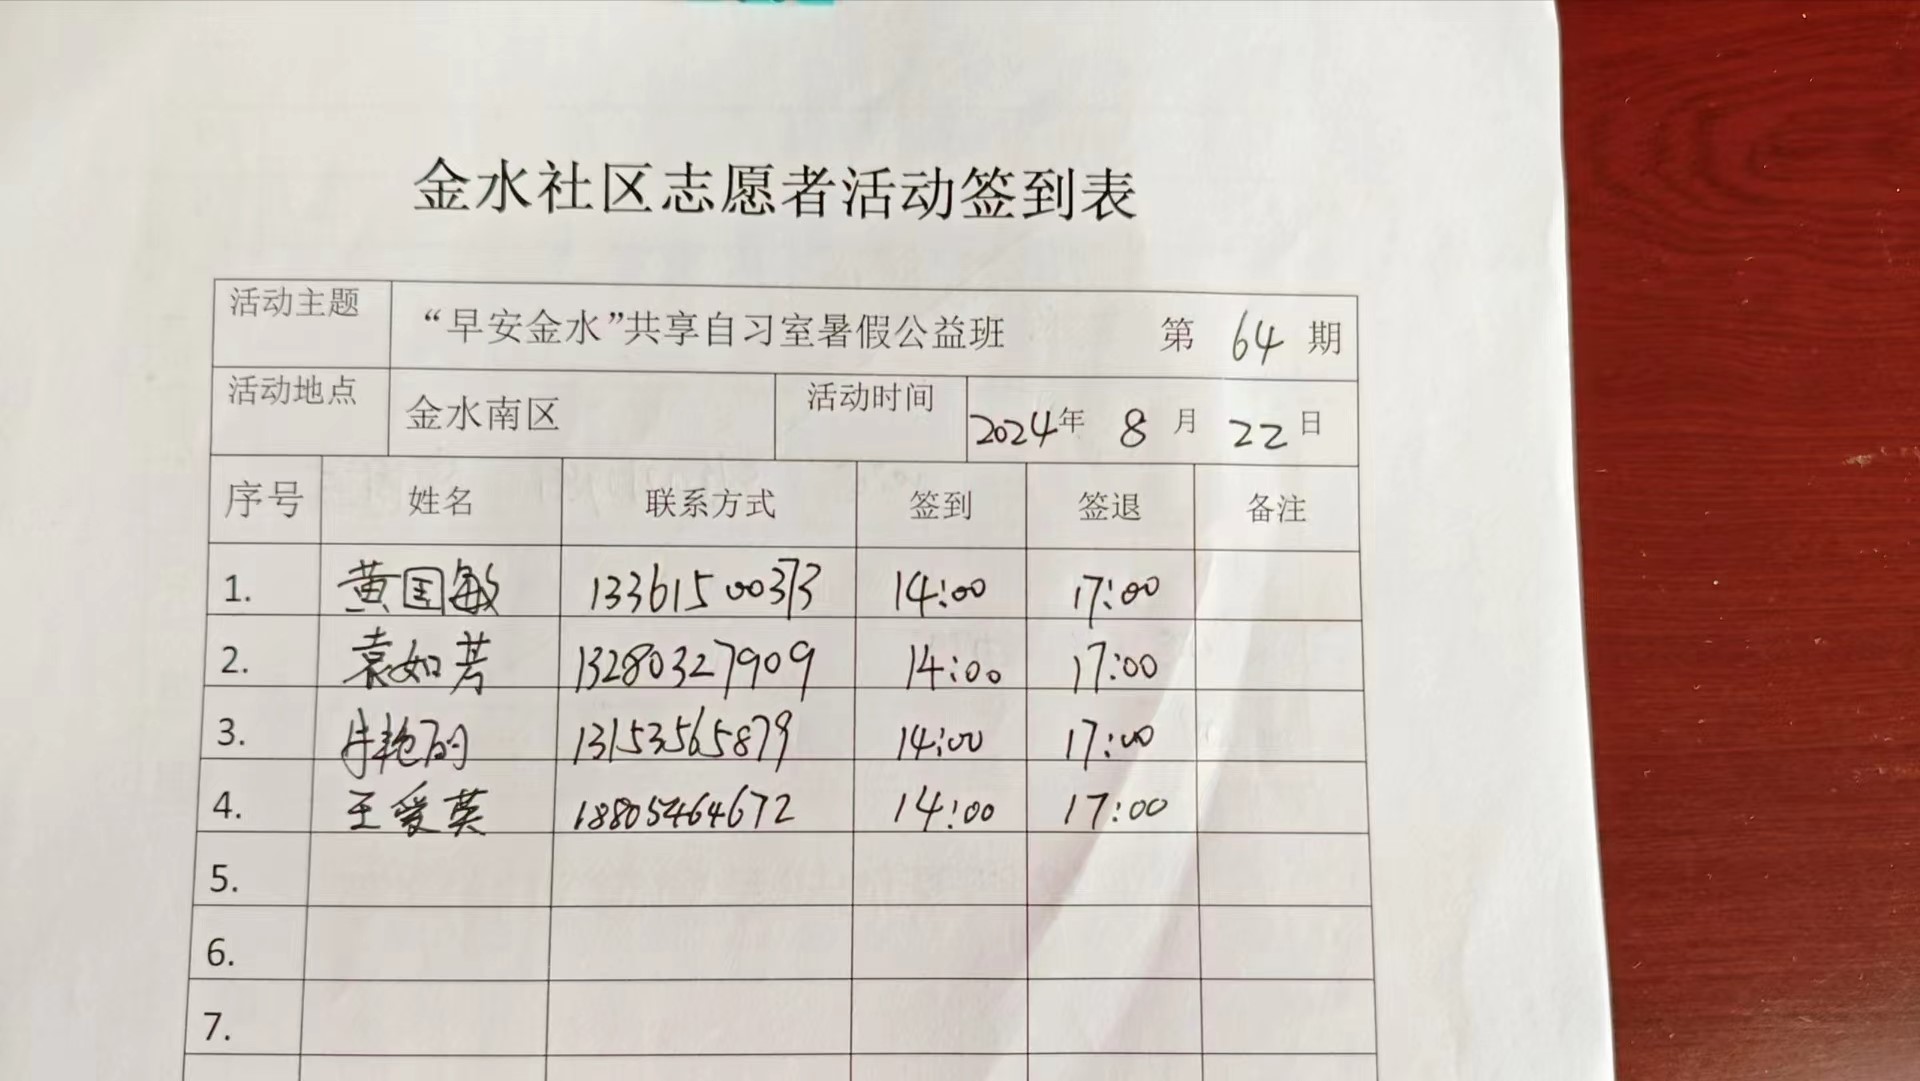 金水社区志愿者活动签到表
活动主题 “早安金水”共享自习室暑假公益班 第 64 期
活动地点 金水南区 活动时间 2024年 8 月 22 日
序号 姓名 联系方式 签到 签退 备注
1. 黄国敏 13361500373 14:00 17:00
2. 袁如芳 13280327909 14:00 17:00
3. 13153565879 14:00 17:00
4. 王爱英 18805464672 14:00 17:00
5.
6.
7.